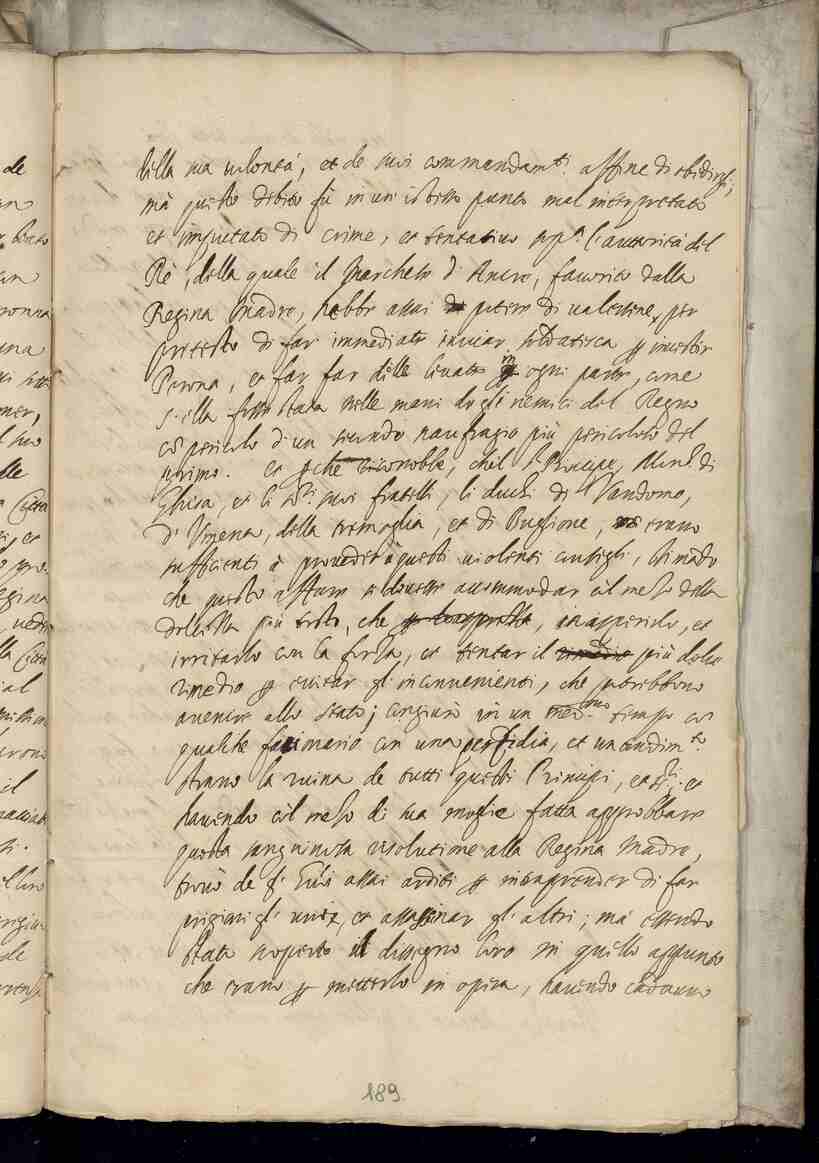 della sua volontà, et de suoi commandam.ti affine di obidirgli;
mà questo debito fù in un istesso punto mal interpretato
et imputato di crime, et tentativo sop.ª l'autorità del
Rè, della quale il Marchese d'Ancre, favorito dalla
Regina Madre, hebbe assai di potere di valersene, per
pretesto di far immediate inviar soldatesca p investir
Perona, et far far delle levate in ogni parte, come
s'ella fosse stata nelle mani degli nemici del Regno
cõ pericolo d'un secondo naufragio più pericoloso del
primo. et che riconobbe, chel S.r Prencipe, Mons.r di
Ghisa, et li s.ri suoi fratelli, li duchi di Vandomo,
d'Umena, della tremoglia, et di Buglione, erano
sufficienti à proveder à questi violenti consigli, di modo
che questo affare si dovesse accommodar col mezo della
dolcezza più tosto, che, inasperirlo, et
irritarlo con la forza, et tentar il più dolce
rimedio p evitar gl'inconvenienti, che potrebbono
avenire allo stato; congiurò in un med.mo tempo cõ
qualche facionario con una perfidia, et un ardim.to
strano la ruina de tutti questi Principi, et s.ri; et
havendo col mezo di sua moglie fatta approbbare
questa sanguinosa risolutione alla Regina Madre,
trovò de s.ri assai arditi p intraprender di far
prigioni gl'uni, et assassinar gl'altri; mà essendo
stato scoperto il dissegno loro in quello appunto
che erano p metterlo in opera, havendo cadauno
189